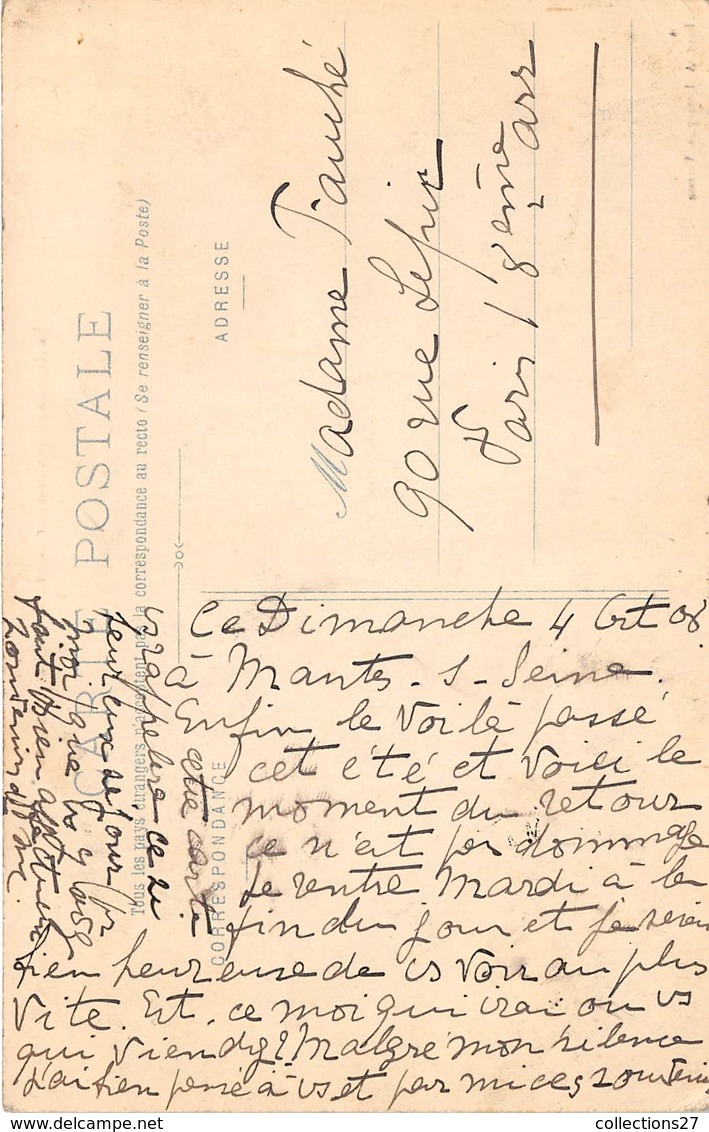 CARTE POSTALE
Tous les pays étrangers n'acceptent pas la correspondance au recto (Se renseigner à la Poste)
CORRESPONDANCE
ADRESSE
Madame Fauché
90 rue Lepic
Paris 18eme arr
Ce Dimanche 4 Oct 08
à Mantes-s-Seine.
Enfin le voilà passé
cet été et voici le
moment du retour
ce n'est pas dommage
Je rentre Mardi à la
fin du jour et je serai
bien heureuse de vs voir au plus
vite. Est-ce moi qui irai ou vs
qui viendez? Malgré mon silence
J'ai bien pensé à vs et parmi ces souvenirs
votre carte
rappelera ce
bien affectueux
collections27